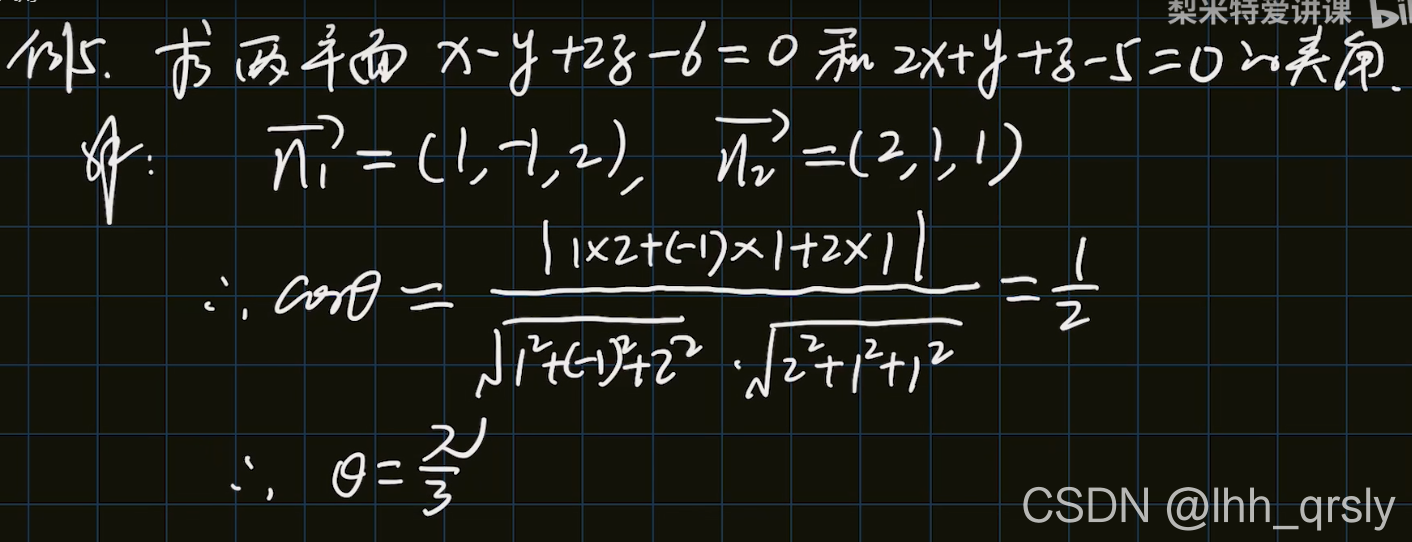 梨米特爱讲课 bil
例5. 求两平面 x-y+2z-6=0 和 2x+y+z-5=0 的夹角.
解: n₁→=(1,-1,2), n₂→=(2,1,1)
∴ cosθ = |1×2+(-1)×1+2×1| / √(1²+(-1)²+2²) · √(2²+1²+1²) = 1/2
∴ θ=π/3
CSDN @lhh_qrsly